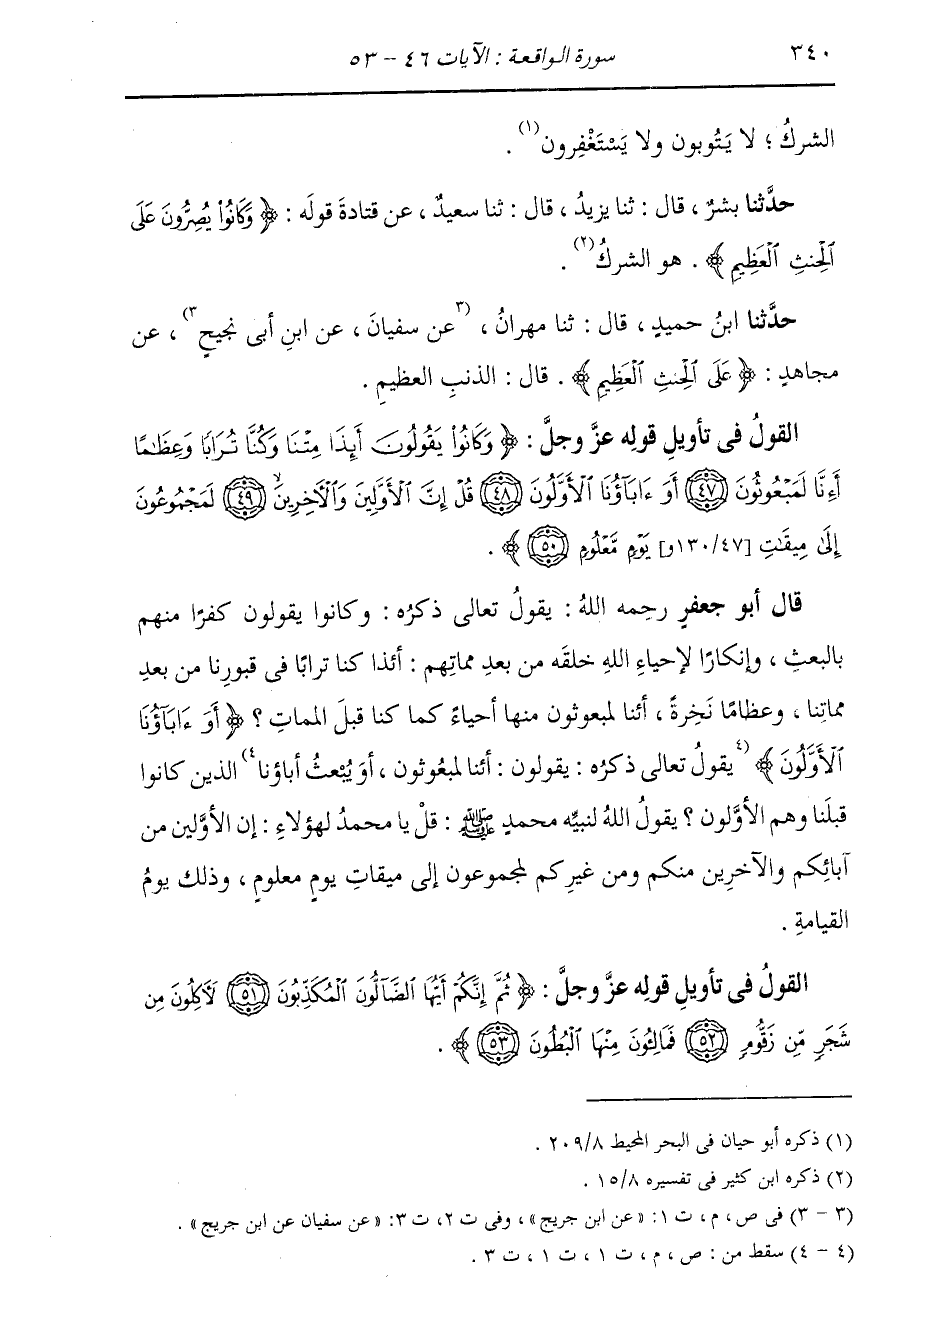 ٣٤٠ سورة الواقعة : الآيات ٤٦ – ٥٣
الشركُ ؛ لا يَتُوبون ولا يَسْتَغْفِرون(١) .
حدَّثنا بشرٌ ، قال : ثنا يزيدُ ، قال : ثنا سعيدٌ ، عن قتادةَ قولَه : ﴿ وَكَانُوا۟ يُصِرُّونَ عَلَى
ٱلْحِنثِ ٱلْعَظِيمِ ﴾ . هو الشركُ(٢) .
حدَّثنا ابنُ حميدٍ ، قال : ثنا مهرانُ ، (٣عن سفيانَ ، عن ابنِ أبى نجيحٍ٣) ، عن
مجاهدٍ : ﴿ عَلَى ٱلْحِنثِ ٱلْعَظِيمِ ﴾ . قال : الذنبِ العظيمِ .
القولُ فى تأويلِ قولِه عزَّ وجلَّ : ﴿ وَكَانُوا۟ يَقُولُونَ أَئِذَا مِتْنَا وَكُنَّا تُرَابًا وَعِظَٰمًا
أَءِنَّا لَمَبْعُوثُونَ ٤٧ أَوَ ءَابَآؤُنَا ٱلْأَوَّلُونَ ٤٨ قُلْ إِنَّ ٱلْأَوَّلِينَ وَٱلْآخِرِينَ ٤٩ لَمَجْمُوعُونَ
إِلَىٰ مِيقَٰتِ [١٣٠/٤٧و] يَوْمٍ مَّعْلُومٍ ٥٠ ﴾ .
قال أبو جعفرٍ رحِمه اللهُ : يقولُ تعالى ذكرُه : وكانوا يقولون كفرًا منهم
بالبعثِ ، وإنكارًا لإحياءِ اللهِ خلقَه من بعدِ مماتِهم : أئذا كنا ترابًا فى قبورِنا من بعدِ
مماتِنا ، وعظامًا نَخِرةً ، أئنا لمبعوثون منها أحياءً كما كنا قبلَ المماتِ ؟ ﴿ أَوَ ءَابَآؤُنَا
ٱلْأَوَّلُونَ ﴾ (٤يقولُ تعالى ذكرُه : يقولون : أئنا لمبعُوثون ، أو يُبْعثُ أباؤنا٤) الذين كانوا
قبلَنا وهم الأوَّلون ؟ يقولُ اللهُ لنبيِّه محمدٍ ﷺ : قلْ يا محمدُ لهؤلاءِ : إن الأوَّلين من
آبائِكم والآخرِين منكم ومن غيرِكم لمجموعون إلى ميقاتِ يومٍ معلومٍ ، وذلك يومُ
القيامةِ .
القولُ فى تأويلِ قولِه عزَّ وجلَّ : ﴿ ثُمَّ إِنَّكُمْ أَيُّهَا ٱلضَّآلُّونَ ٱلْمُكَذِّبُونَ ٥١ لَآكِلُونَ مِن
شَجَرٍ مِّن زَقُّومٍ ٥٢ فَمَالِئُونَ مِنْهَا ٱلْبُطُونَ ٥٣ ﴾ .
(١) ذكره أبو حيان فى البحر المحيط ٢٠٩/٨ .
(٢) ذكره ابن كثير فى تفسيره ١٥/٨ .
(٣ – ٣) فى ص ، م ، ت ١: «عن ابن جريج» ، وفى ت ٢، ت ٣: «عن سفيان عن ابن جريج» .
(٤ – ٤) سقط من : ص ، م ، ت ١ ، ت ١ ، ت ٣ .